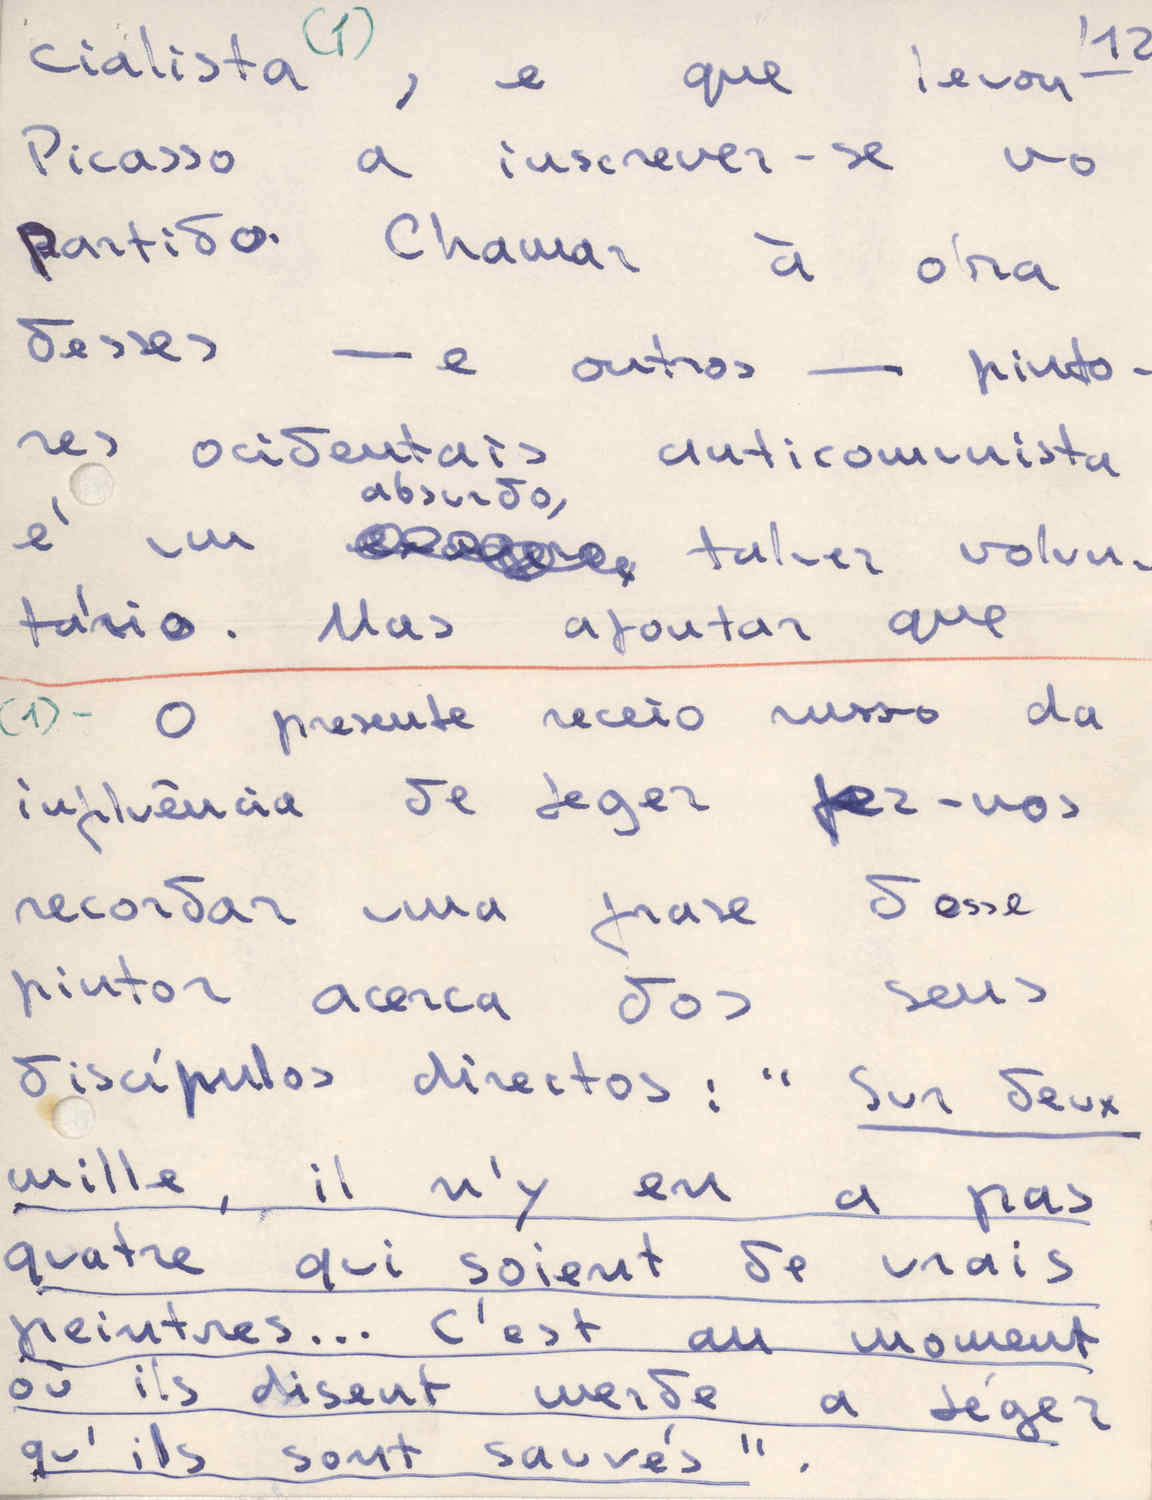 12
cialista (1), e que levou
Picasso a inscrever-se no
partido. Chamar à obra
desses — e outros — pinto-
res ocidentais anticomunista
é um absurdo, talvez volun-
tário. Mas ajontar que
(1) - O presente receio russo da
influência de Leger fez-nos
recordar uma frase desse
pintor acerca dos seus
discípulos directos: "Sur deux
mille, il n'y en a pas
quatre qui soient de vrais
peintres... C'est au moment
où ils disent merde a Léger
qu'ils sont sauvés".